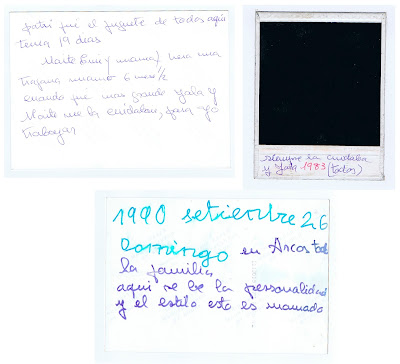 patri fué el juguete de todos aqui
tenia 19 dias
Maite Luis y mama)
mamo 6 mese ½
cuando fué mas grande Yala y
Maite me la cuidaban, para yo
trabajar
siempre la cuidaba
y Yala 1983 (todos)
1990 setiembre 26
Domingo en Arcos toda
la familia
aqui se be la personalidad
y el estilo esto es mamado